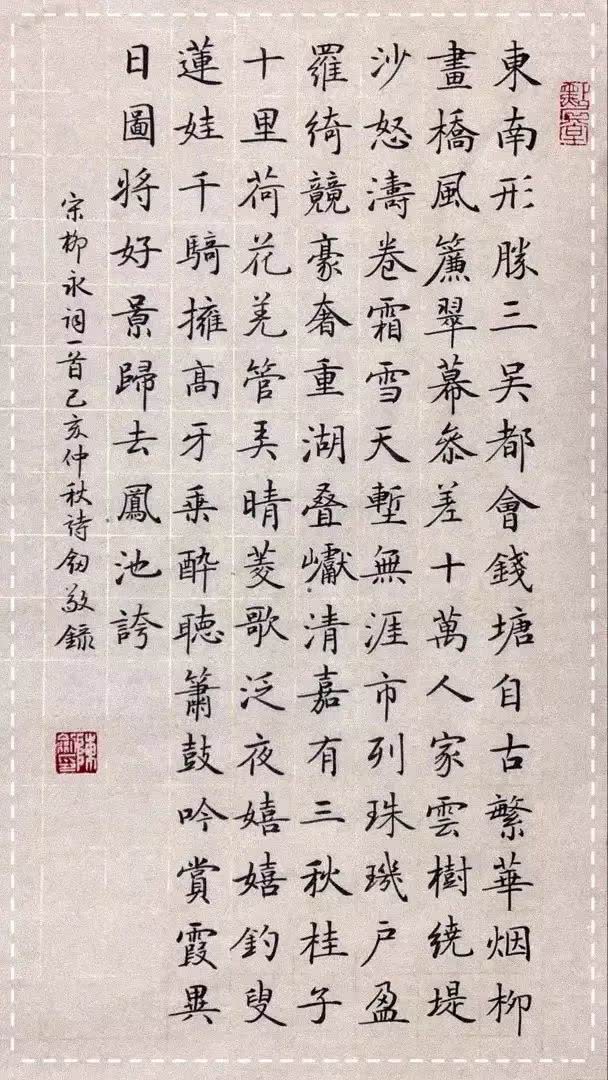 東南形勝三吴都會錢塘自古繁華烟柳
畫橋風簾翠幕叅差十萬人家雲樹繞堤
沙怒濤卷霜雪天塹無涯市列珠璣户盈
羅綺競豪奢重湖叠巘清嘉有三秋桂子
十里荷花羌管弄晴菱歌泛夜嬉嬉釣叟
蓮娃千騎擁高牙乗醉聽簫鼓吟賞霞異
日圖將好景歸去鳳池誇
宋柳永詞一首己亥仲秋詩釰敬録